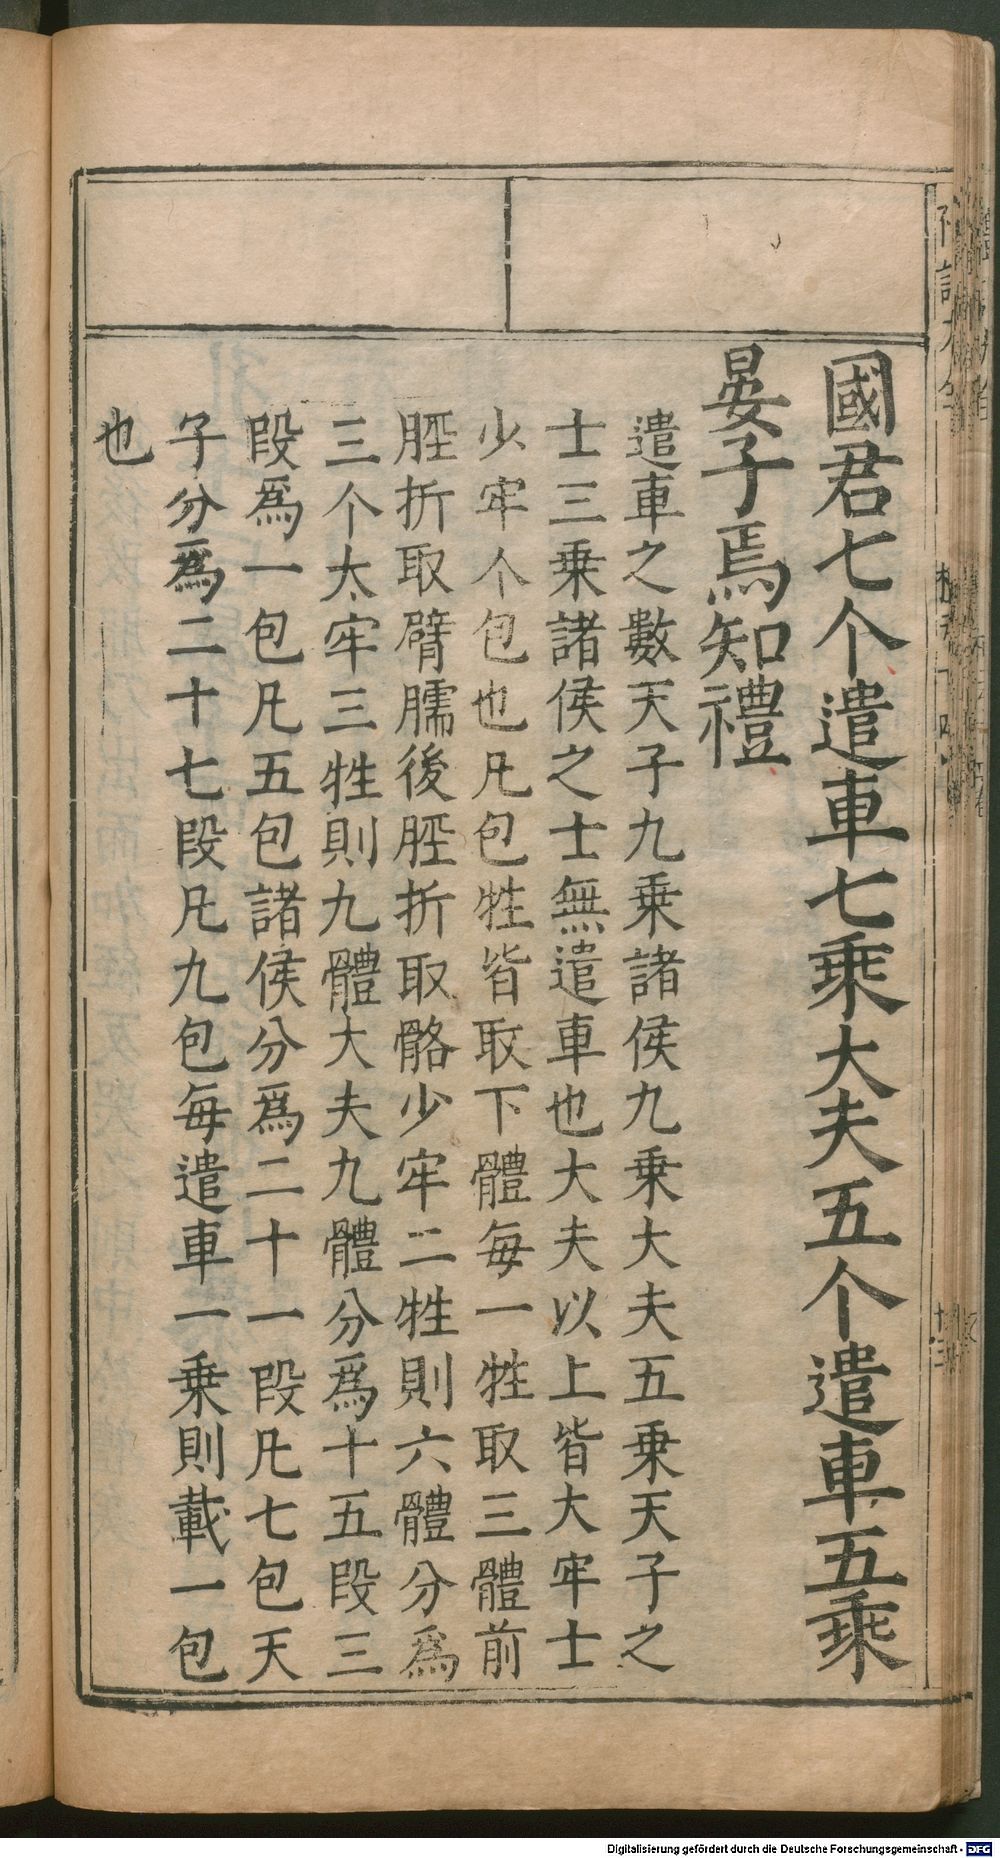 國君七个遣車七乘大夫五个遣車五乘
晏子焉知禮
遣車之數天子九乘諸侯九乘大夫五乘天子之
士三乘諸侯之士無遣車也大夫以上皆大牢士
少牢个包也凡包牲皆取下體每一牲取三體前
脛折取臂臑後脛折取骼少牢二牲則六體分爲
三个太牢三牲則九體大夫九體分爲十五段三
段爲一包凡五包諸侯分爲二十一段凡七包天
子分爲二十七段凡九包每遣車一乘則載一包
也
Digitalisierung gefördert durch die Deutsche Forschungsgemeinschaft - DFG